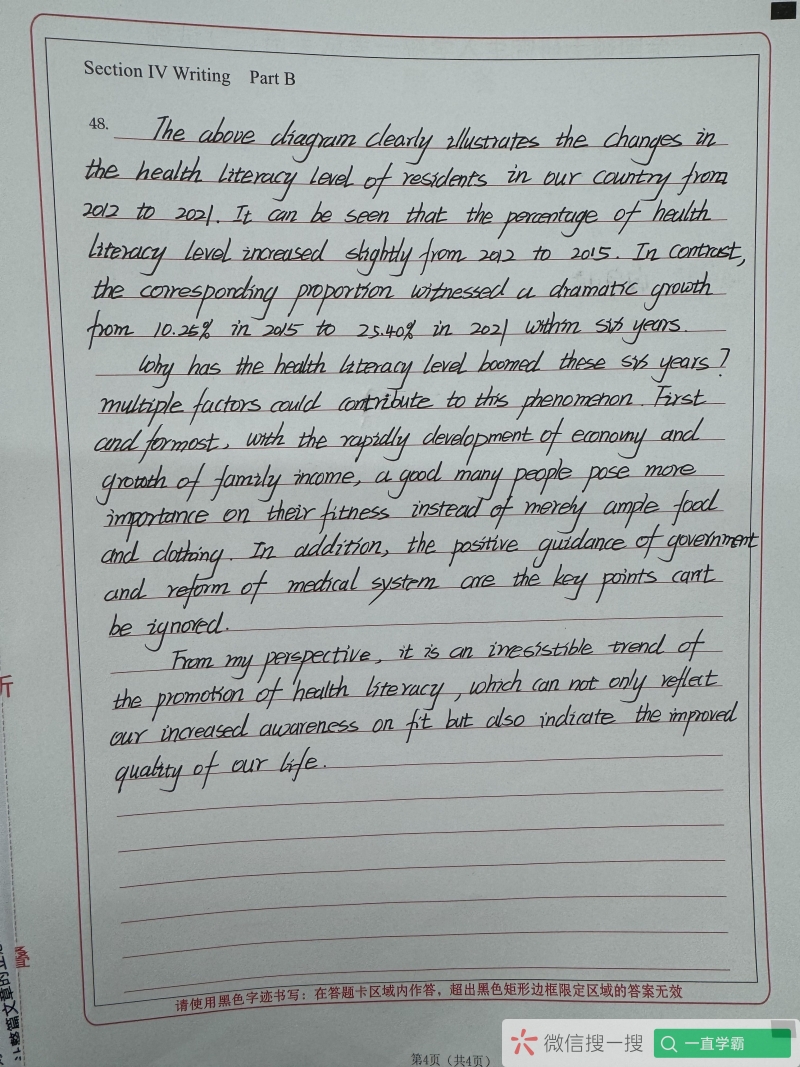 Section IV Writing Part B
48. The above diagram clearly illustrates the changes in
the health literacy level of residents in our country from
2012 to 2021. It can be seen that the percentage of health
literacy level increased slightly from 2012 to 2015. In contrast,
the corresponding proportion witnessed a dramatic growth
from 10.25% in 2015 to 25.40% in 2021 within six years.
Why has the health literacy level boomed these six years?
multiple factors could contribute to this phenomenon. First
and formost, with the rapidly development of economy and
growth of family income, a good many people pose more
importance on their fitness instead of merely ample food
and clothing. In addition, the positive guidance of government
and reform of medical system are the key points can't
be ignored.
From my perspective, it is an inresistible trend of
the promotion of health literacy, which can not only reflect
our increased awareness on fit but also indicate the improved
quality of our life.
请使用黑色字迹书写：在答题卡区域内作答，超出黑色矩形边框限定区域的答案无效
第4页（共4页）
微信搜一搜
一直学霸